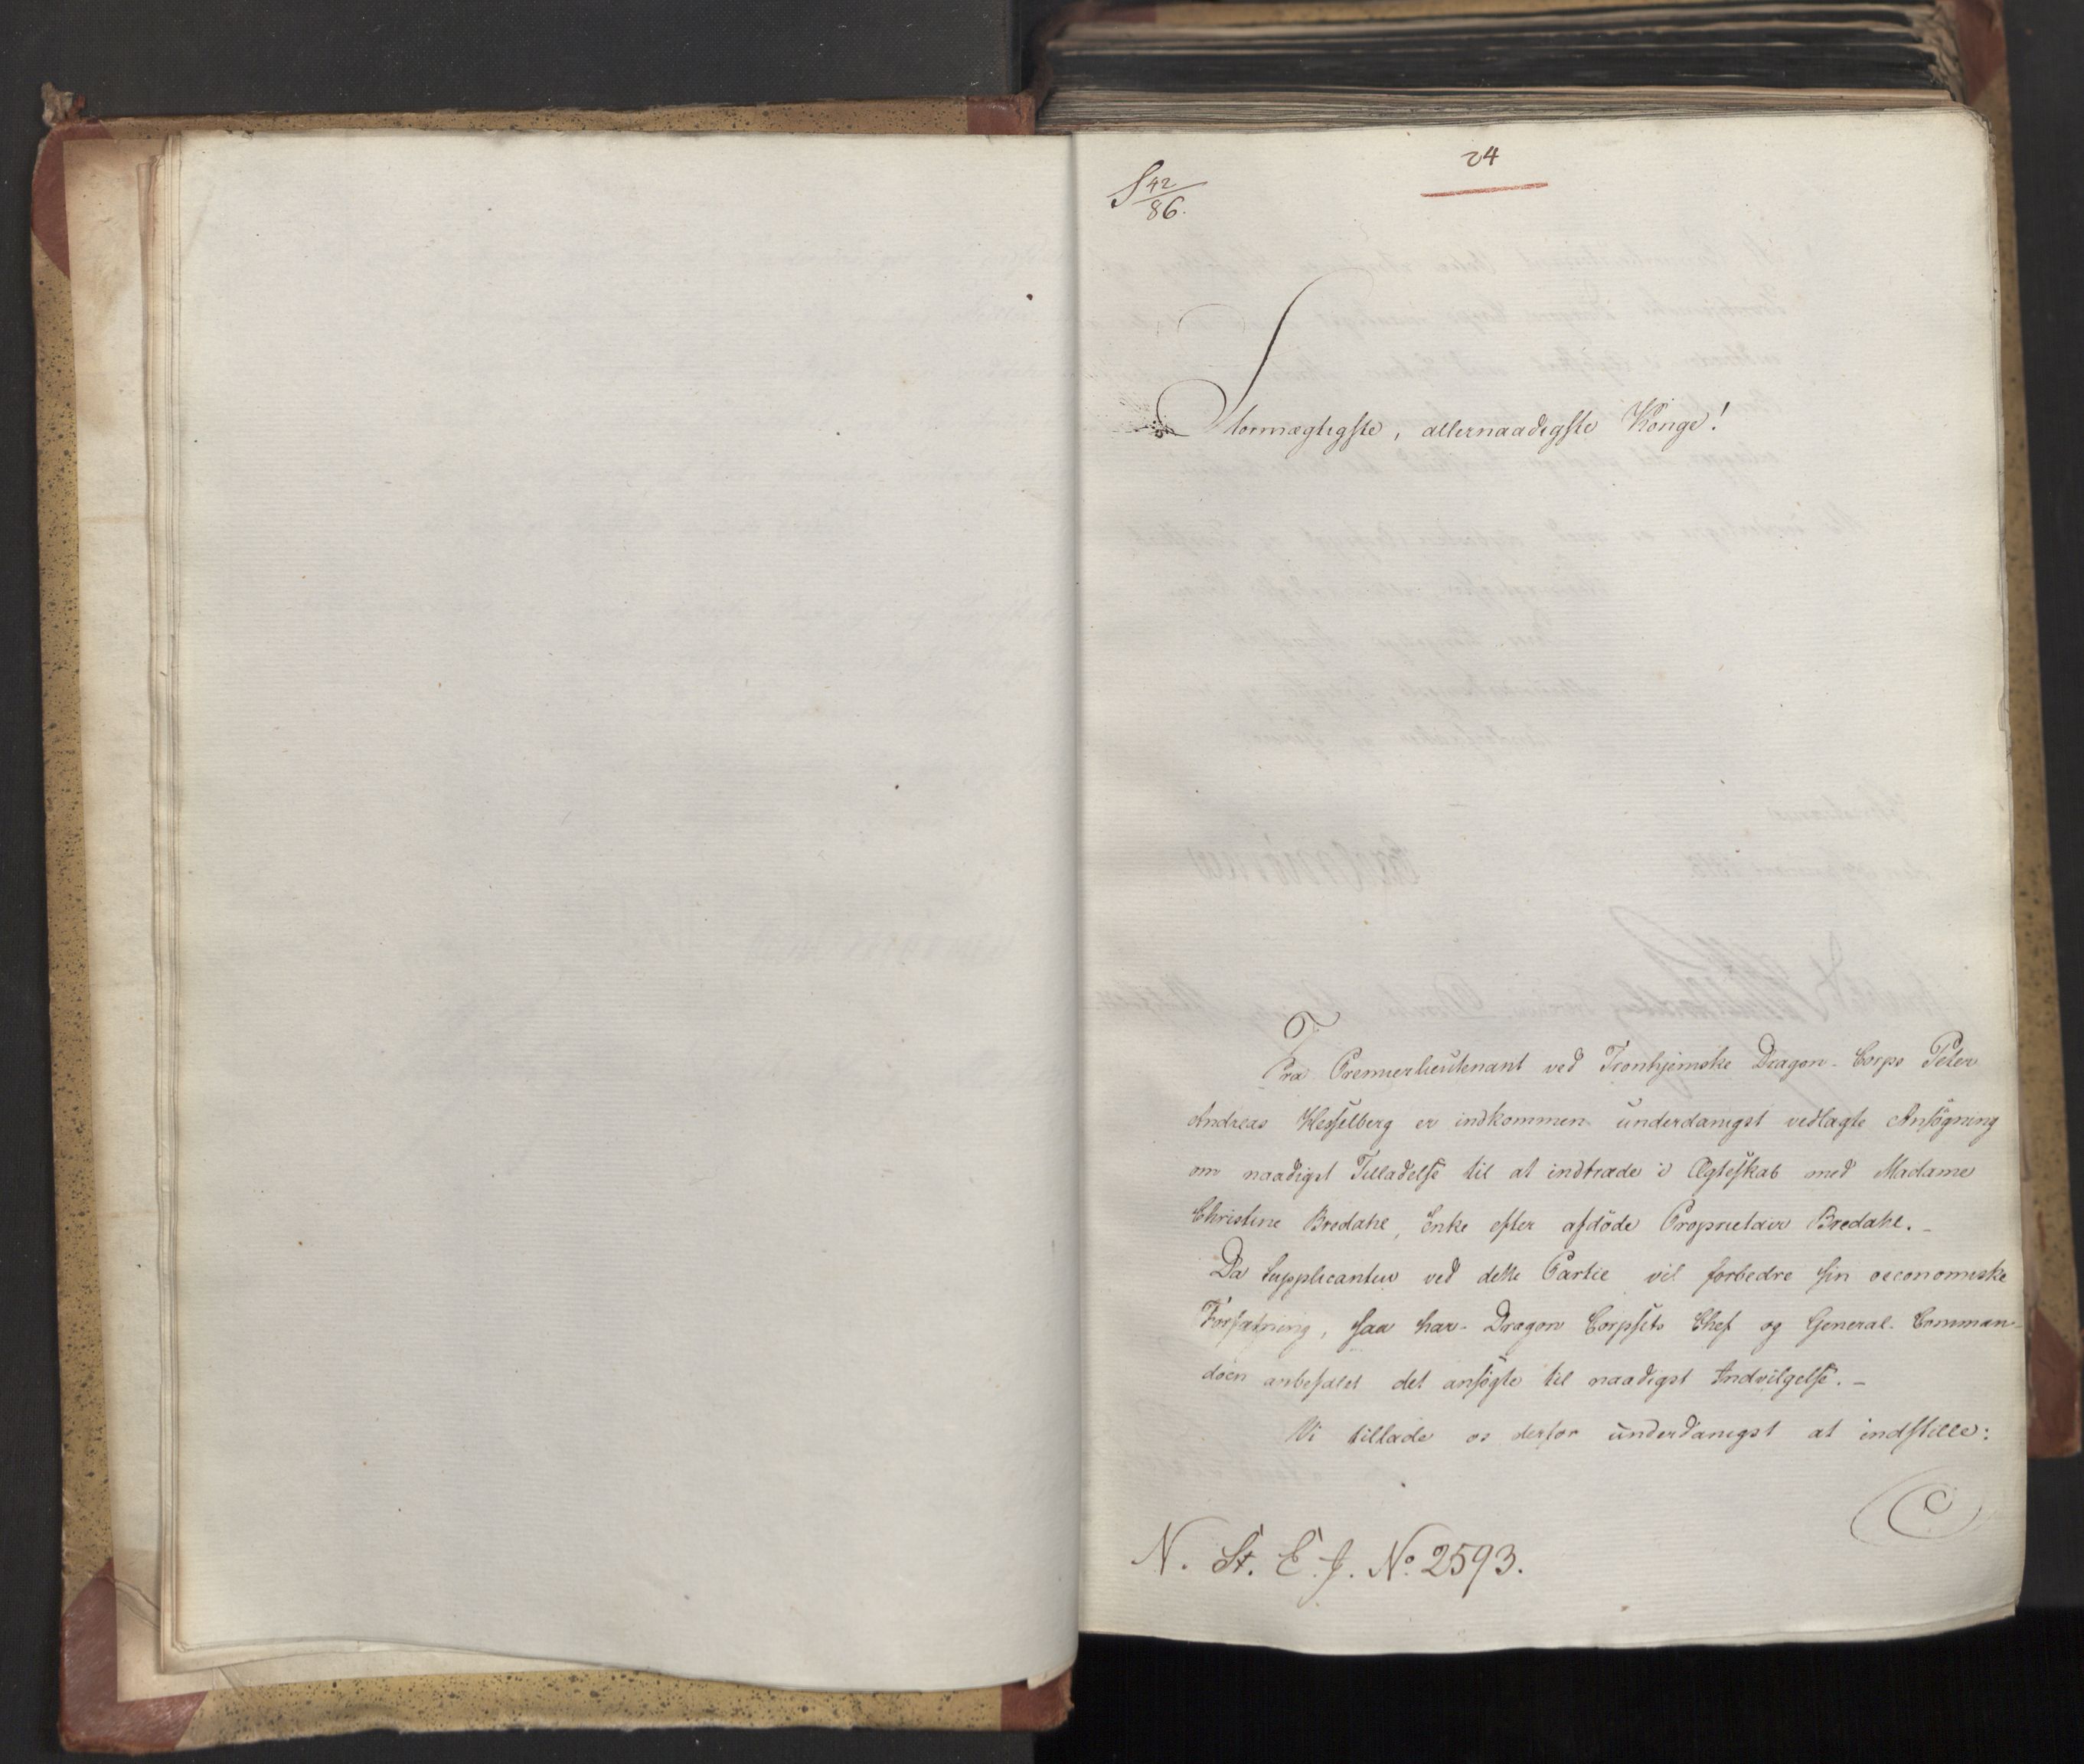 24
S 42/86.
Stormægtigste, allernaadigste Konge!
Fra Premierlieutenant ved Tronhjemske Dragon-Corps Peter
Andreas Hesselberg er indkommen underdanigst vedlagte Ansøgning
om naadigst Tilladelse til at indtræde i Ægteskab med Madame
Christine Bredahl, Enke efter afdöde Proprietair Bredahl.-
Da Supplicanten ved dette Partie vil forbedre sin oeconomiske
Forfatning, saa har Dragon Corpsets Chef og General-Comman-
doen anbefalet det ansögte til naadigst Indvilgelse.-
Vi tillade os derfor underdanigst at indstille:
N. St. E. J. No. 2593.